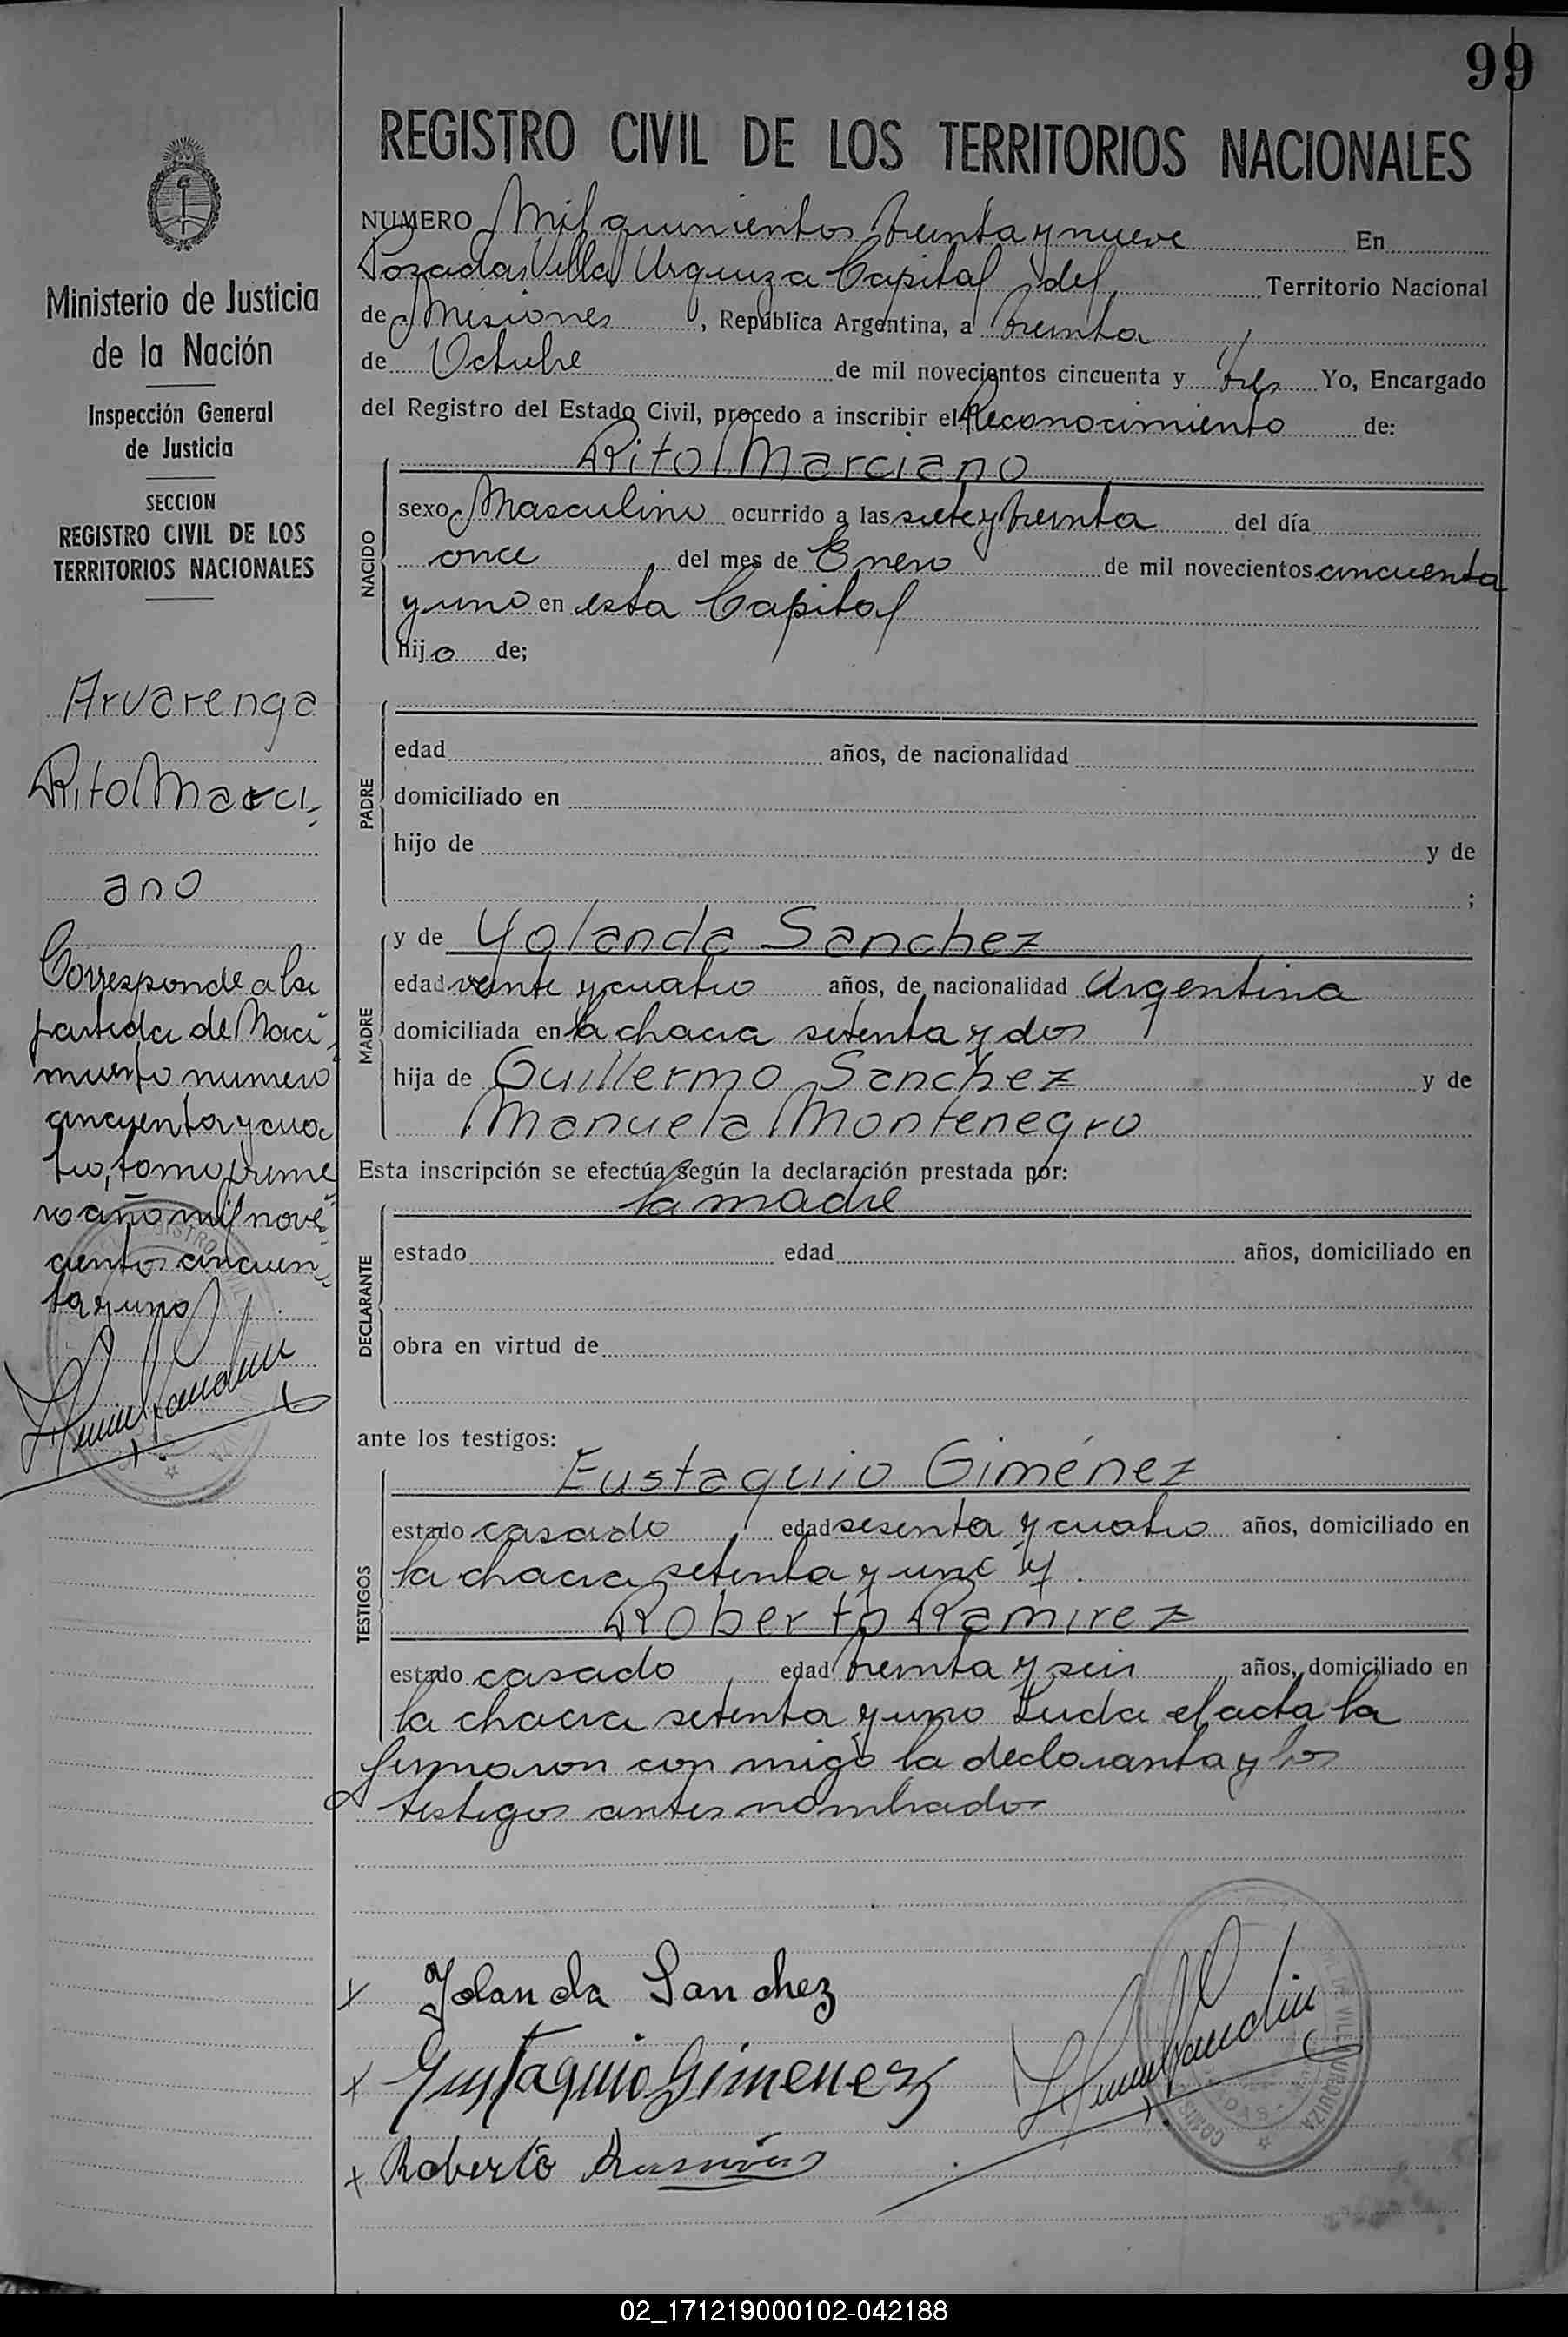 99
REGISTRO CIVIL DE LOS TERRITORIOS NACIONALES
NUMERO Mil quinientos treinta y nueve En
Pozadas Villa Urquiza Capital del Territorio Nacional
de Misiones, República Argentina, a treinta
de Octubre de mil novecientos cincuenta y tres Yo, Encargado
del Registro del Estado Civil, procedo a inscribir el Reconocimiento de:
Ministerio de Justicia
de la Nación
Inspección General
de Justicia
SECCION
REGISTRO CIVIL DE LOS
TERRITORIOS NACIONALES
Arvarenga
Rito Marci
ano
Corresponde a la
partida de Naci
miento numero
cincuenta y cua
tro, tomo prime
ro año mil nove
cientos cincuen
ta y uno
NACIDO
Rito Marciano
sexo Masculino ocurrido a las siete y treinta del día
once del mes de Enero de mil novecientos cincuenta
y uno en esta Capital
hijo de;
PADRE
edad años, de nacionalidad
domiciliado en
hijo de y de
;
MADRE
y de Yolanda Sanchez
edad veinte y cuatro años, de nacionalidad Argentina
domiciliada en la chacra setenta y dos
hija de Guillermo Sanchez y de
Manuela Montenegro
Esta inscripción se efectúa según la declaración prestada por:
la madre
DECLARANTE
estado edad años, domiciliado en
obra en virtud de
ante los testigos:
TESTIGOS
Eustaquio Giménez
estado casado edad sesenta y cuatro años, domiciliado en
la chacra setenta y uno y
Roberto Ramirez
estado casado edad treinta y seis años, domiciliado en
la chacra setenta y uno Leida el acta la
firmaron con migo la declaranta y los
testigos antes nombrados
x Yolanda Sanchez
x Eustaquio Gimenez
x Roberto
02_171219000102-042188